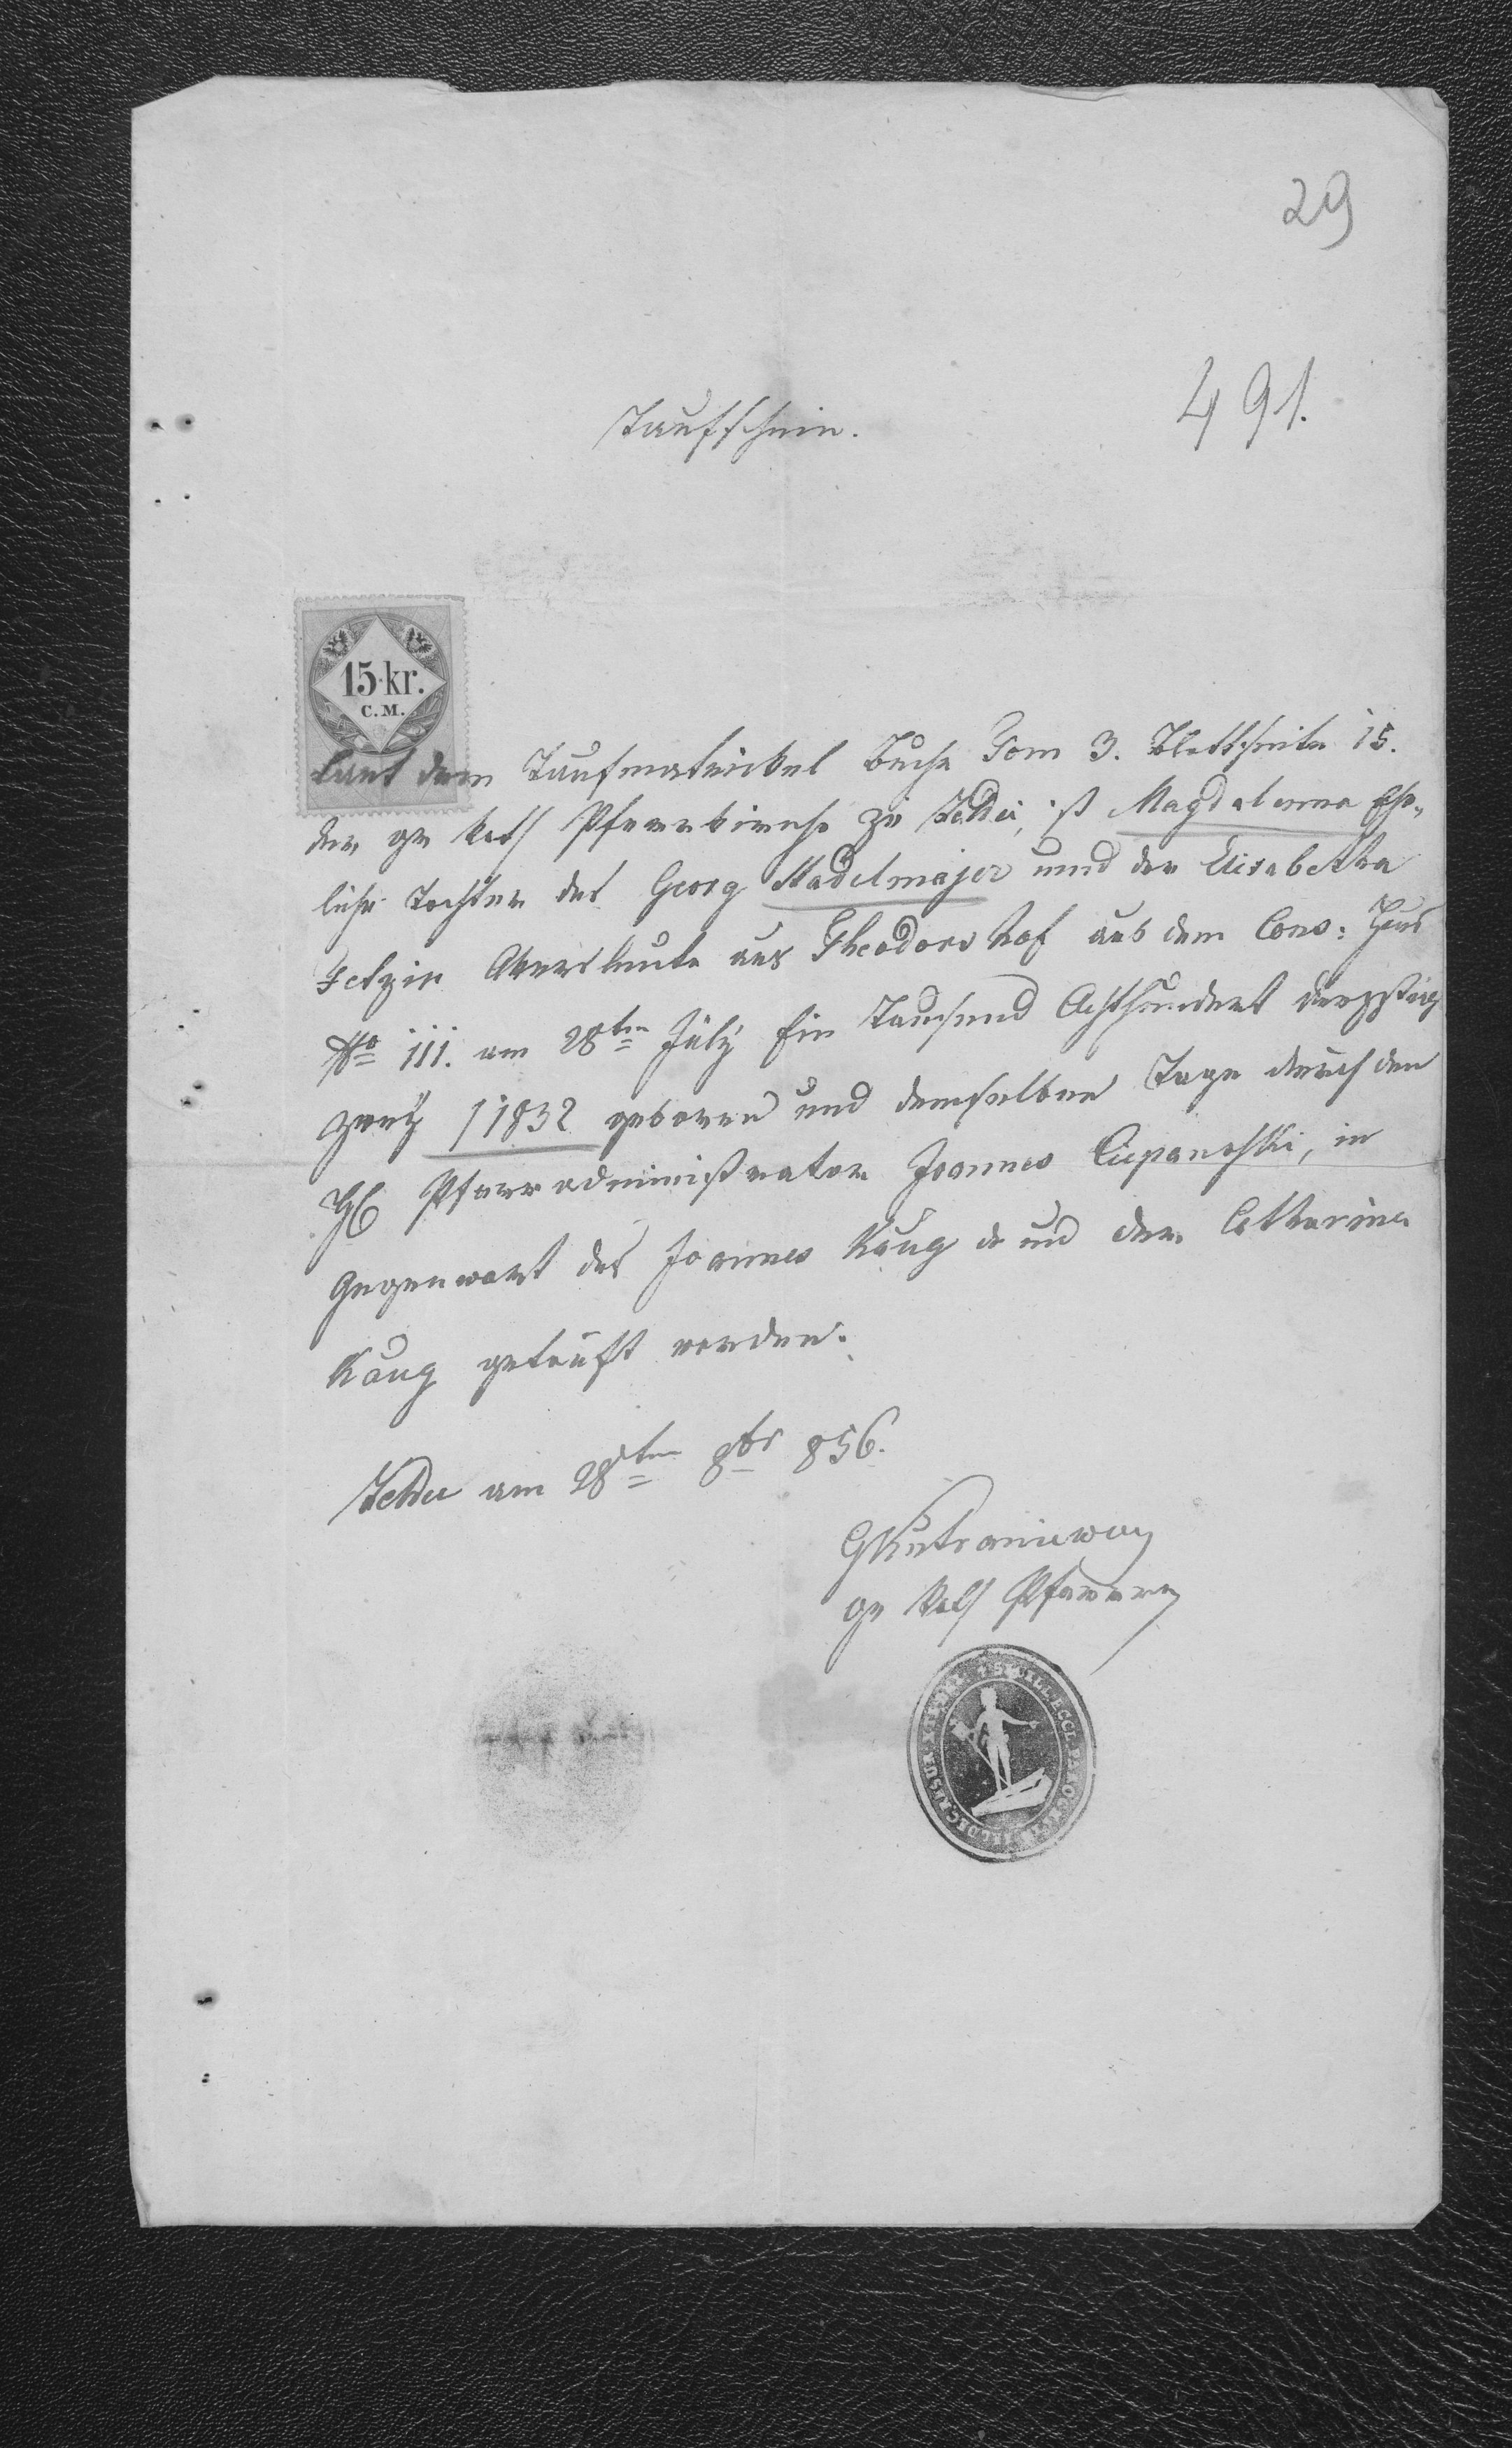 29
491.
Taufschein.
15 kr.
C.M.
Laut dem Taufmatrickel Buche Tom 3. Blattseite 15.
der gr kath Pfarrkirche zu Zeldec, ist Magdalenna Ehe-
liche Tochter des Georg Stadelmajer und der Elisabetha
Fetzin Akersleute aus Theodorshof aus dem Cons: Haus
No 111. am 28ten July Ein Tausend Achthundert dreyssig
zwey /1832 geboren und demselben Tage durch den
H Pfarradministrator Joannes Ciepanoski, in
Gegenwart des Joannes Kaug und der Catharina
Kaug getauft worden.
Zeldec am 28ten 8br 856.
gr kath Pfarrer